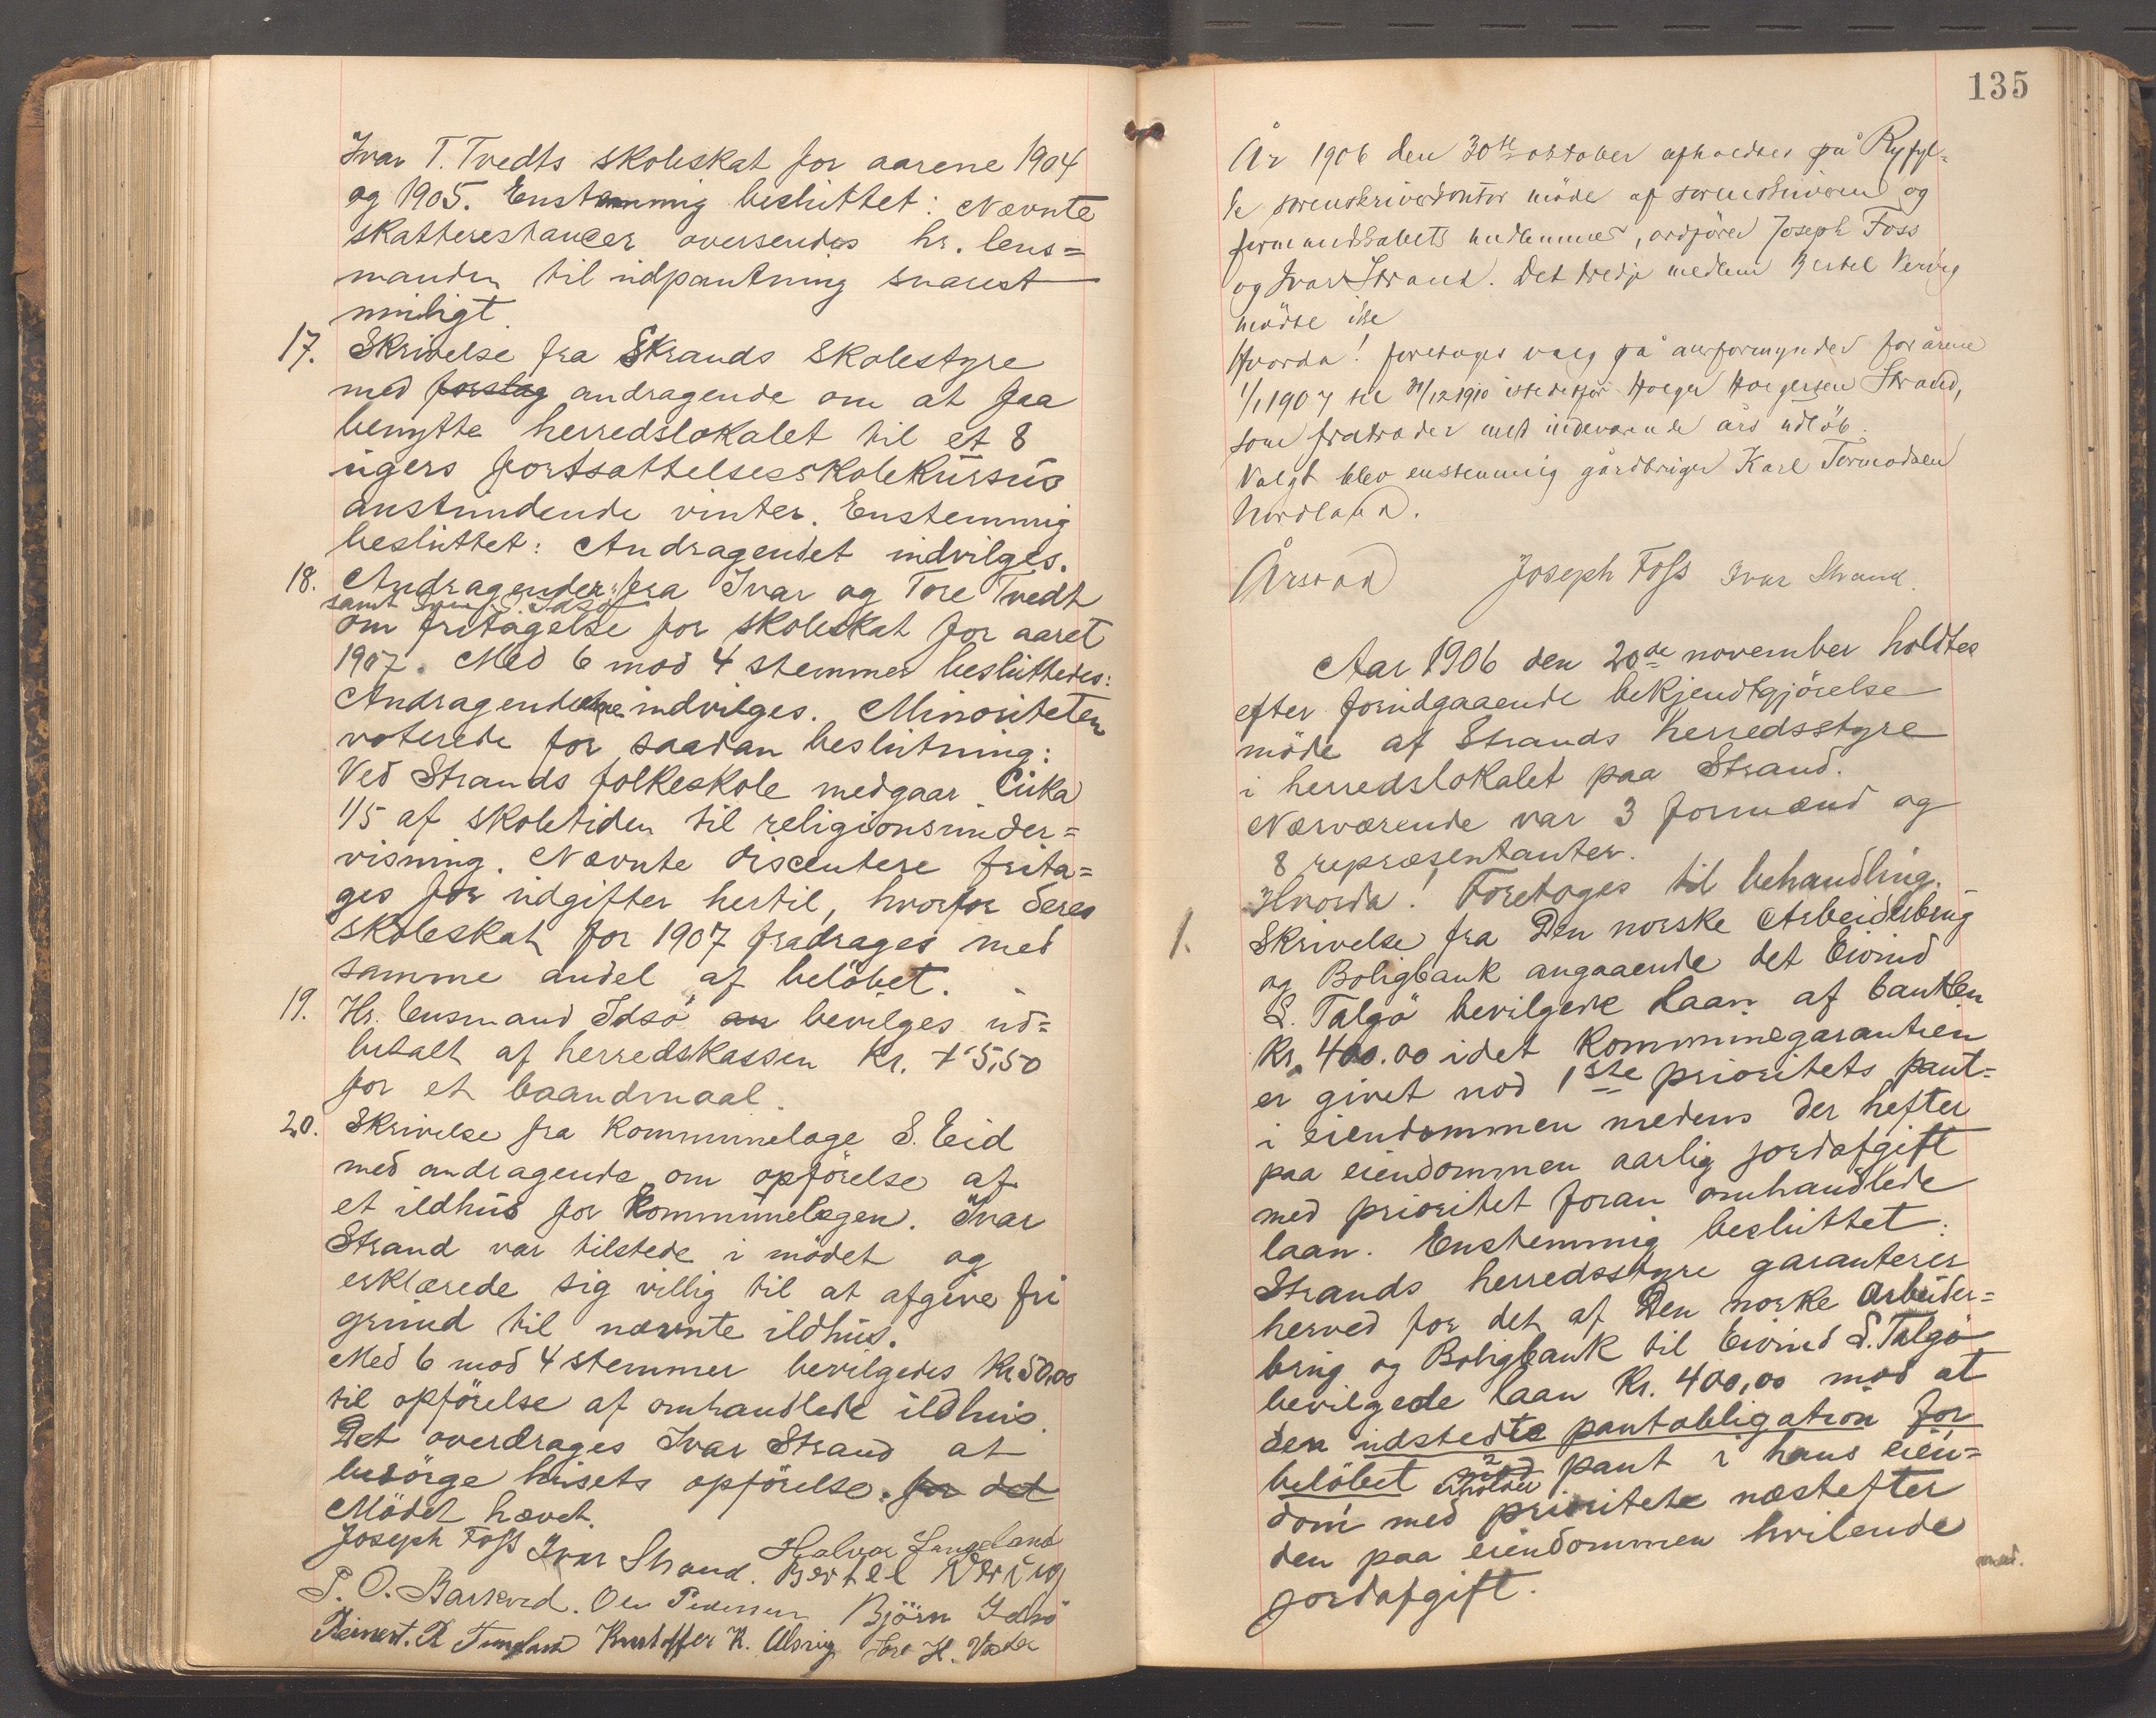 Ivar T. Tvedts skoleskat for aarene 1904
og 1905. Enstemmig besluttet: Nævnte
skatterestancer oversendes hr. lens=
manden til udpantning snarest
muligt.
17. Skrivelse fra Strands Skolestyre
med forslag andragende om at faa
benytte herredslokalet til et 8
ugers fortsættelsesskolekursus
anstundende vinter. Enstemmig
besluttet: Andragendet indvilges.
18. Andragender fra Ivar og Tore Tvedt
samt Idsø
om fritagelse for skoleskat for aaret
1907. Med 6 mod 4 stemmer besluttedes:
Andragenderne indvilges. Minoriteten
voterede for saadan beslutning:
Ved Strands folkeskole medgaar cirka
1/5 af skoletiden til religionsunder=
visning. Nævnte dissentere frita=
ges for udgifter hertil, hvorfor deres
skoleskat for 1907 fradrages med
samme andel af beløbet.
19. Hr. lensmand Idsö an bevilges ud=
betalt af herredskassen Kr. 5,50
for et baandmaal.
20. Skrivelse fra Kommunelæge S. Eid
med andragende om opförelse af
et ildhus for Kommunelægen. Ivar
Strand var tilstede i mödet og
erklærede sig villig til at afgive fri
grund til nævnte ildhus.
Med 6 mod 4 stemmer bevilgedes Kr 50,00
til opförelse af omhandlede ildhus.
Det overdrages Ivar Strand at
besörge husets opförelse. for det
Mödet hævet.
Joseph Foss Ivar Strand. Halvor Langeland
Bertel Vervig
P. O. Barkved. Ole Pedersen Björn Idsö
Reinert. R Tungland Kristoffer K. Alsvig Tore H.
135
År 1906 den 30te oktober afholdtes på Ryfyl=
ke sorenskriverkontor möde af sorenskriveren og
formandskabets medlemmer, ordförer Joseph Foss
og Ivar Strand. Det tredje medlem Bertel Vervig
mödte ikke
Hvorda! foretages valg på overformynder for årene
1/1 1907 til 31/12 1910 istedetfor Holger Holgersen Strand,
som fratræder med indeværende års udløb.
Valgt blev enstemmig gårdbruger Karl Tormodsen
Nordland.
Årsvad Joseph Foss Ivar Strand.
Aar 1906 den 20de november holdtes
efter forudgaaende bekjendtgjörelse
möde af Strands Herredsstyre
i herredslokalet paa Strand.
Nærværende var 3 formænd og
8 repræsentanter.
Hvorda! Foretoges til behandling.
1. Skrivelse fra Den norske Arbeiderbrug
og Boligbank angaaende det Eivind
S. Talgö bevilgede laan af banken
Kr. 400.00 idet Kommunegarantien
er givet mod 1ste prioritets pant=
i eiendommen medens der hefter
paa eiendommen aarlig jordafgift
med prioritet foran omhandlede
laan. Enstemmig besluttet:
Strands herredsstyre garanterer
herved for det af Den norske Arbeider=
brug og Boligbank til Eivind S. Talgö
bevilgede laan Kr. 400,00 mod at
den udstedte pantobligation for
beløbet med erholder pant i hans eien=
dom med prioritete næstefter
den paa eiendommen hvilende
jordafgift.